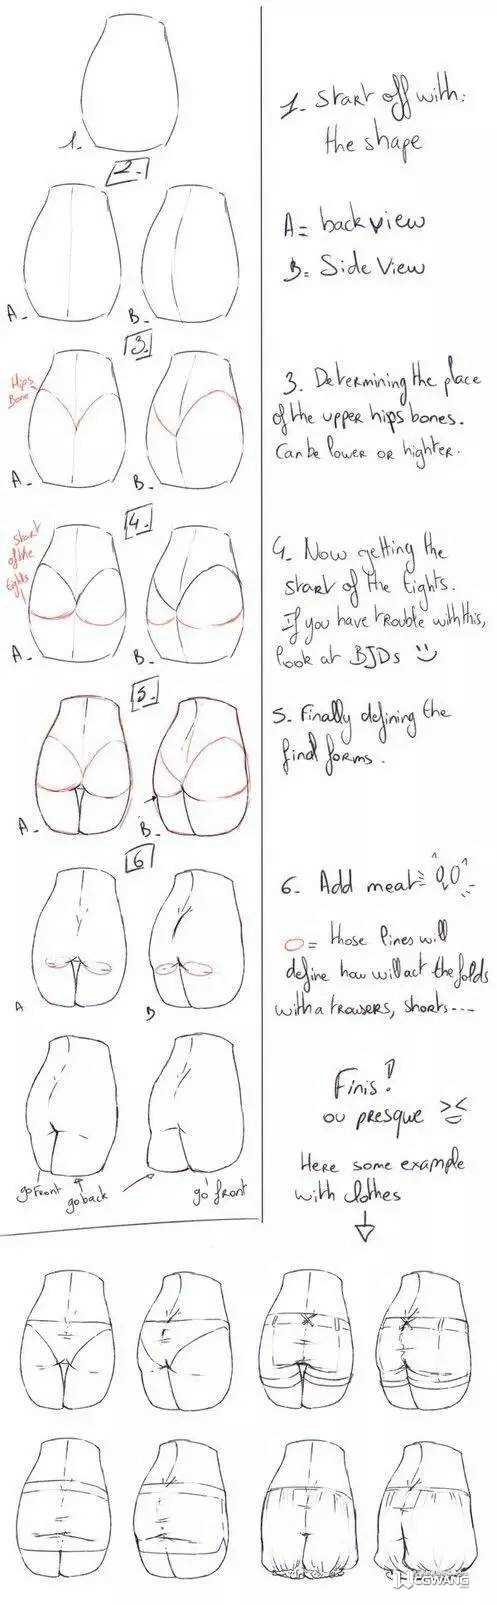 1.
1. Start off with:
the shape
2.
A= back view
B= Side View
A-
B-
3.
Hips
Bone
3. Determining the place
of the upper hips bones.
Can be lower or highter.
A-
B-
4.
start
of the
tights
4. Now getting the
start of the tights.
If you have trouble with this,
look at BJDs
A-
B-
5.
5. Finally defining the
final forms.
A-
B-
6
6. Add meat
= those lines will
define how will act the folds
with a trousers, shorts---
A
B
Finis!
ou presque ><
go front
go back
go front
Here some example
with clothes
CGWANG